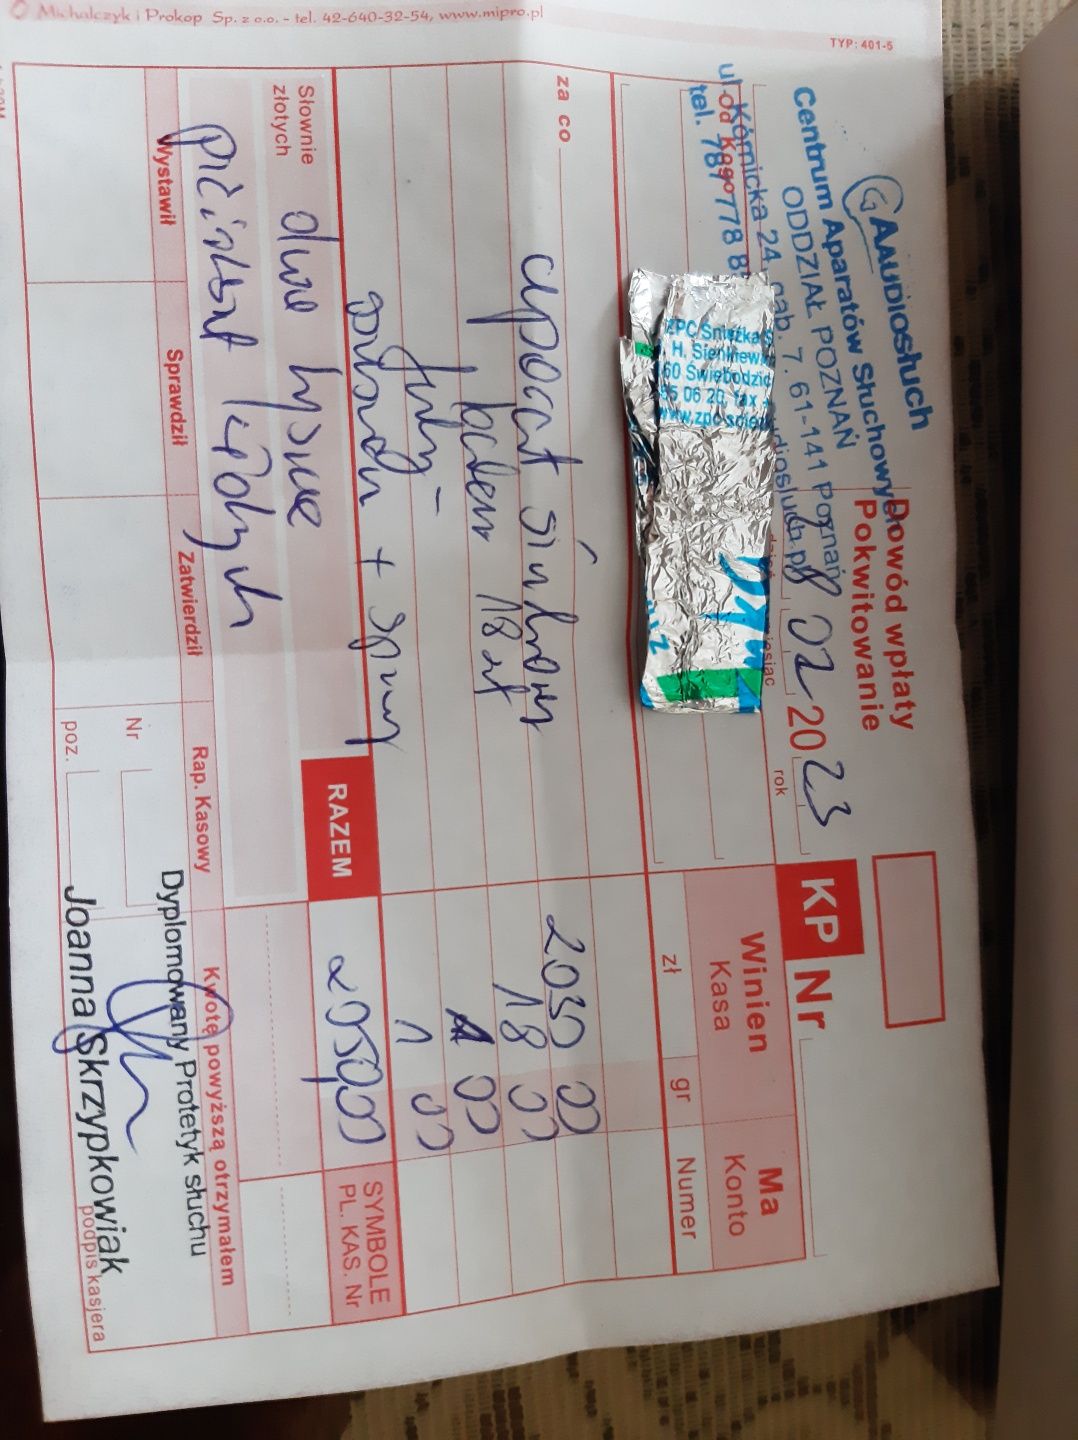 Michalczyk i Prokop Sp. z o.o. - tel. 42-640-32-54, www.mipro.pl
TYP: 401-5
GAAUDIOSŁUCH
Centrum Aparatów Słuchowych
ODDZIAŁ POZNAŃ
ul. Kórnicka 24, gab. 7. 61-141 Poznań
tel. 787 778 8
Dowód wpłaty
Pokwitowanie
KP Nr
02 2023
miesiąc rok
od kogo
ZPC Śnieżka S
H. Sienkiew
60 Świebodzic
06 20, fax
www.zpc-śnież
Winien
Kasa
Ma
Konto
zł gr Numer
za co
aparat słuchowy 2030 00
baterie 18 szt 18 00
1 00
1 00
RAZEM 2050,00
Słownie
złotych
dwa tysiące
pięćdziesiąt złotych
SYMBOLE
PL. KAS. Nr
Wystawił Sprawdził Zatwierdził Rap. Kasowy Kwotę powyższą otrzymałem
Nr
poz.
Dyplomowany Protetyk słuchu
Joanna Skrzypkowiak
podpis kasjera